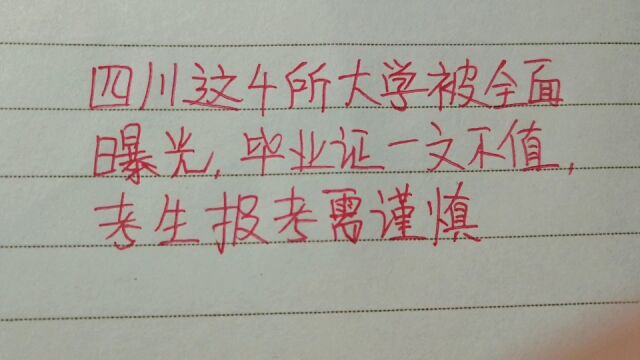 四川这4所大学被全面
曝光,毕业证一文不值,
考生报考需谨慎